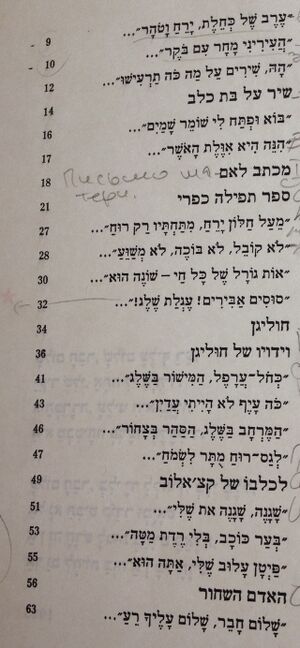 "עֶרֶב שֶׁל כְּחֵלֶת, יָרֵחַ וָטֹהַר"...
9 "הֲעִירִינִי מָחָר עִם בֹּקֶר"...
10 "הָהּ, שִׁירִים עַל מַה כֹּה תַרְעִישׁוּ"...
12 שיר על בת כלב
14 "בּוֹא וּפְתַּח לִי שׁוֹמֵר שָׁמַיִם"...
16 "הִנֵּה הִיא אִוֶּלֶת הָאֹשֶׁר"...
17 מכתב לאם
Письмо ма-
тери.
18 ספר תפילה כפרי
21 "מֵעַל חַלּוֹן יָרֵחַ, מִתַּחְתָּיו רַק רוּחַ"...
27 "לֹא קוֹבֵל, לֹא בּוֹכֶה, לֹא מְשַׁוֵּעַ"...
28 "אוֹת גּוֹרָל שֶׁל כָּל חַי – שׁוֹנֶה הוּא"...
30 "סוּסִים אַבִּירִים! עֶגְלַת שֶׁלֶג!"...
32 חוליגן
34 וידויו של חוליגן
36 "כְּחֹל־עֲרָפֶל, הַמִּישׁוֹר בַּשֶּׁלֶג"...
41 "כֹּה עָיֵף לֹא הָיִיתִי עֲדַיִן"...
43 "הַמֶּרְחָב בַּשֶּׁלֶג, הַסַּהַר בְּצָחוֹר"...
46 "לְגַס־רוּחַ מֻתָּר לִשְׂמֹחַ"...
47 לכלבו של קצ'אלוב
49 "שָׁגָנֶה, שָׁגָנֶה אַת שֶׁלִּי"...
51 "בְּעֵר כּוֹכָב, בְּלִי רֶדֶת מַטָּה"...
53 "פַּיְטָן עָלוּב שֶׁלִּי, אַתָּה הוּא"...
55 האדם השחור
56 "שָׁלוֹם חָבֵר, שָׁלוֹם עָלֶיךָ רֵעַ"...
63